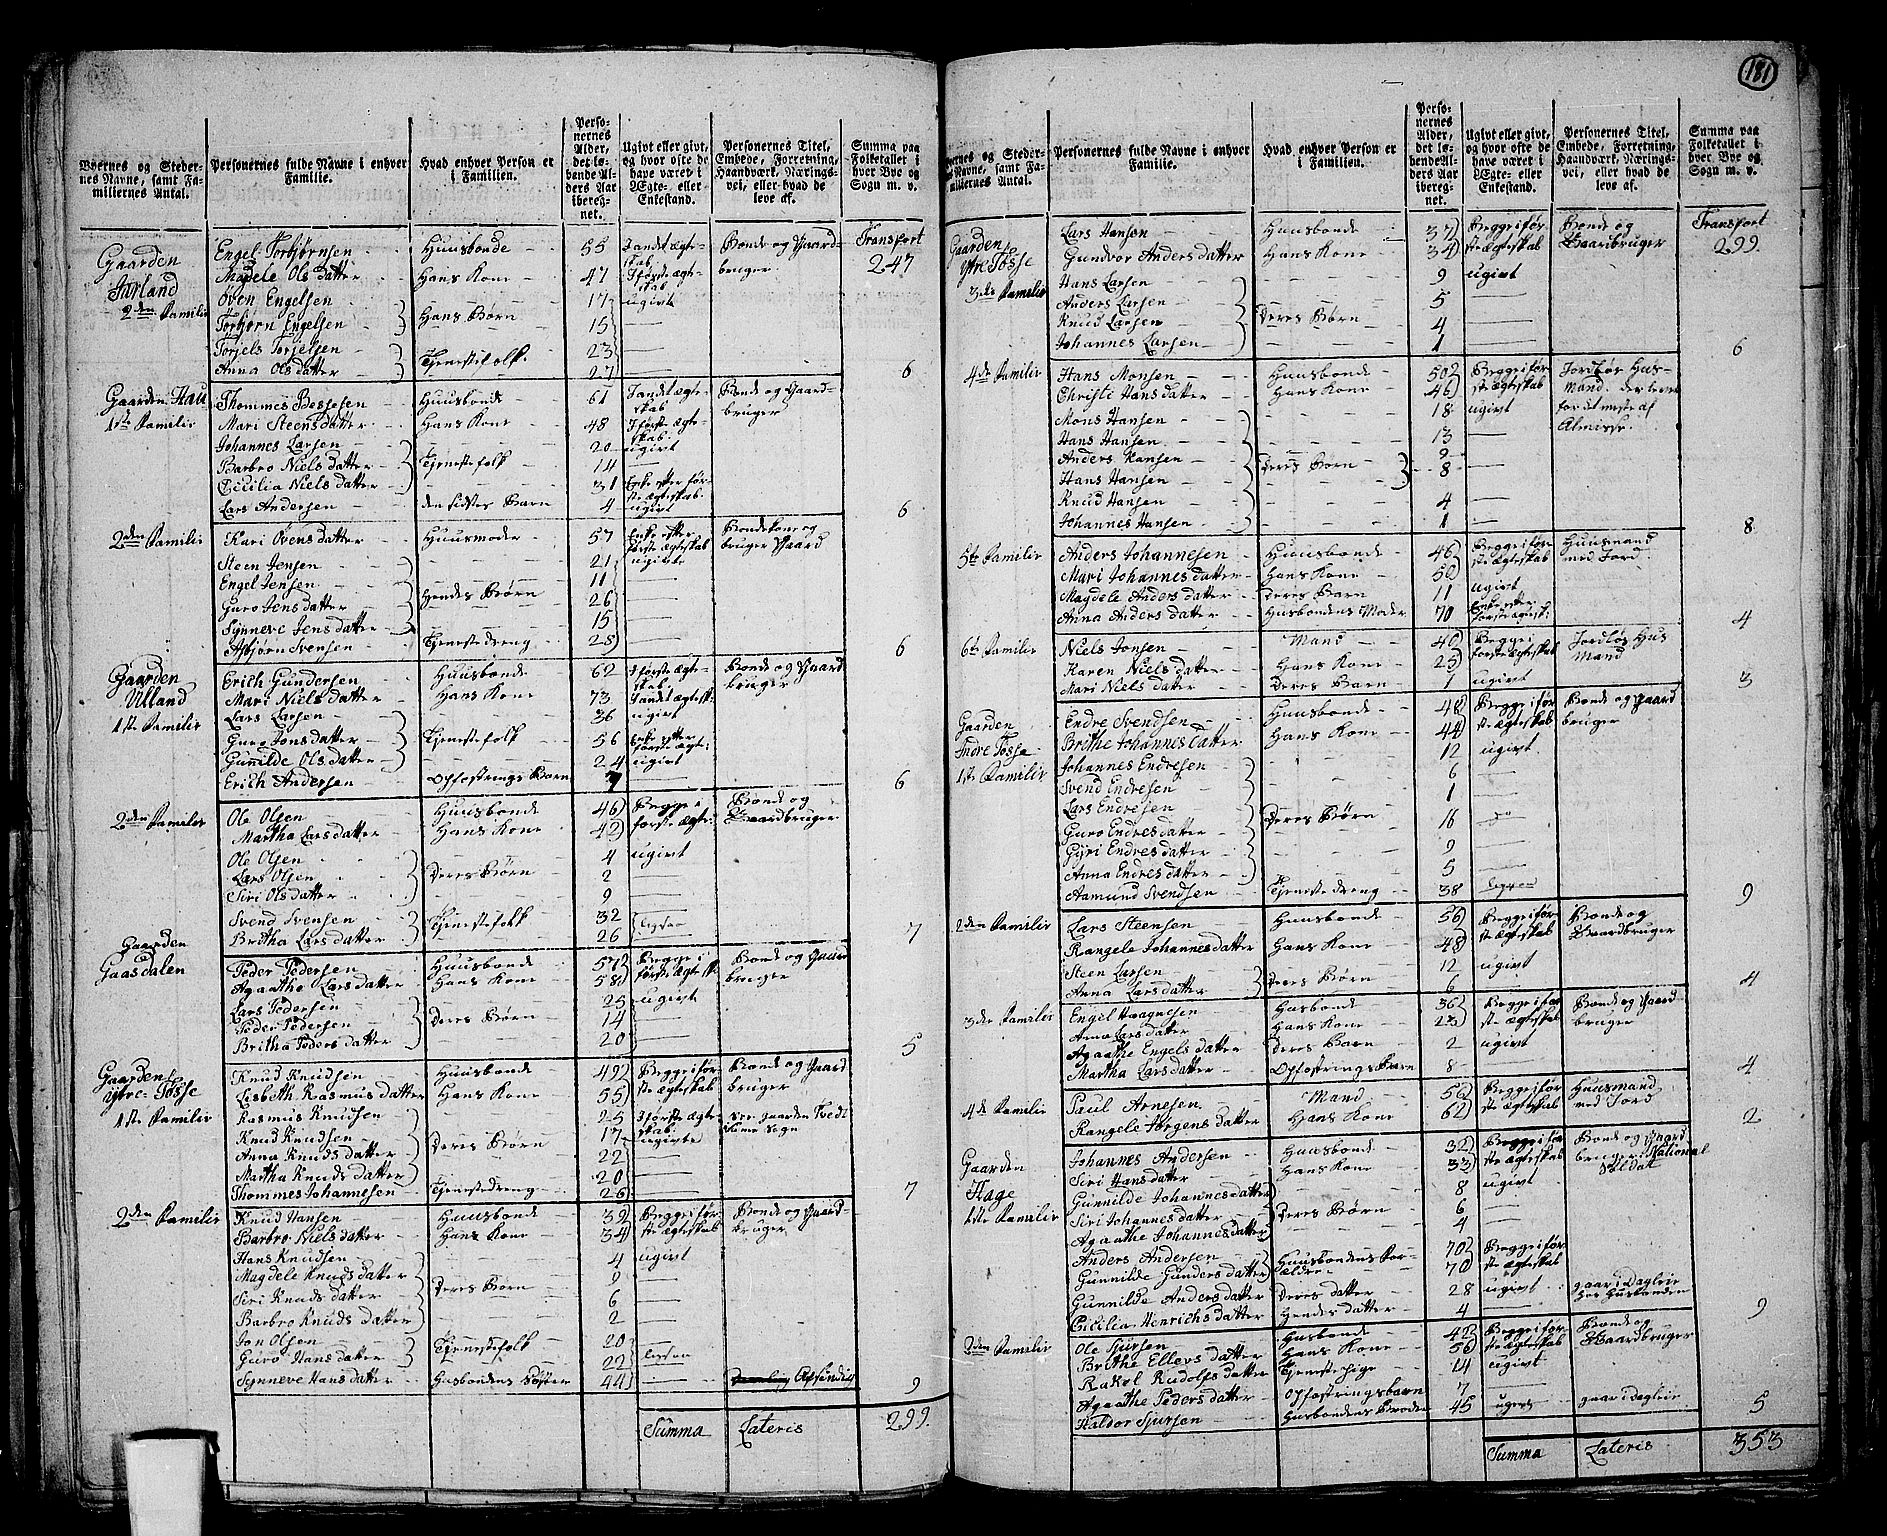 181
Byernes og Stedernes Navne, samt Familiernes Antal.
Personernes fulde Navne i enhver Familie.
Hvad enhver Person er i Familien.
Personernes Alder, det løbende Alders Aar iberegnet.
Ugivt eller givt, og hvor ofte de have været i Ægte- eller Enkestand.
Personernes Titel, Embede, Forretning, Haandværk, Næringsvei, eller hvad de leve af.
Summa paa Folketallet i hver Bye og Sogn m. v.
Transport 247
Gaarden Jarland 2den Familie
Engel Torbjørnsen Huusbonde 55 I andt ægteskab Bonde og Gaardbruger
Madele Olsdatter Hans Kone 47 I første ægteskab
Øven Engelsen 17 ugivt
Torbjørn Engelsen Hans Børn 15
Torjels Torjelsen 23
Anna Olsdatter Tjenestefolk 27 6
Gaarden Hau 1ste Familie
Thommes Bessesen Huusbonde 61 I andt ægteskab Bonde og Gaardbruger
Mari Steensdatter Hans Kone 48 I første ægteskab
Johannes Larsen 20 ugivt
Barbro Nielsdatter Tjenestefolk 14
Cicilia Nielsdatter 31 Enke efter første ægteskab
Lars Andersen den sidstes Barn 4 ugivt 6
2den Familie
Kari Øvensdatter Huusmoder 57 Enke efter første ægteskab Bondekone og bruger Gaard
Steen Jensen 21 ugivte
Engel Jensen 11
Guro Jensdatter Hendes Børn 26
Synneve Jensdatter 15
Asbjørn Svensen Tjenestedreng 25 6
Gaarden Ulland 1ste Familie
Erich Gundersen Huusbonde 62 I første ægteskab Bonde og Gaardbruger
Mari Nielsdatter Hans Kone 73 I andt ægtesk:
Lars Larsen 36 ugivt
Guro Jonsdatter Tjenestefolk 56 Enke efter første ægt:
Gunnilde Olsdatter 24 ugivt
Erich Andersen Opfostrings Barn 7 6
2den Familie
Ole Olsen Huusbonde 46 Begge i første ægte: Bonde og Gaardbruger
Martha Larsdatter Hans Kone 42
Ole Olsen 4 ugivt
Lars Olsen Deres Børn 2
Siri Olsdatter 9
Svend Svensen Tjenestefolk 32 ligsaa
Britha Larsdatter 26 7
Gaarden Gaasdalen
Peder Pedersen Huusbonde 57 Begge i første ægtesk: Bonde og Gaardbruger
Agaathe Larsdatter Hans Kone 58
Lars Pedersen 25 ugivt
Peder Pedersen Deres Børn 14
Britha Pedersdatter 20 5
Gaarden Ytre-Tøsse 1ste Familie
Knud Knudsen Huusbonde 49 Begge i første ægteskab Bonde og Gaardbruger
Lisbeth Rasmusdatter Hans Kone 55
Rasmus Knudsen 25 I første ægteskab
Knud Knudsen 17 ugivte
Anna Knudsdatter Deres Børn 22
Martha Knudsdatter 20
Thommes Johannesen Tjenestedreng 26 7
2den Familie
Knud Hansen Huusbonde 39 Begge i første ægteskab Bonde og Gaardbruger
Barbro Nielsdatter Hans Kone 34
Hans Knudsen 4 ugivt
Magdele Knudsdatter 9
Siri Knudsdatter Deres Børn 6
Barbro Knudsdatter 2
Jon Olsen 20
Guro Hansdatter Tjenestefolk 22 ligsaa
Synneve Hansdatter Husbondens Søster 44 9
Summa Lateris 299.
Byernes og Stedernes Navne, samt Familiernes Antal.
Personernes fulde Navne i enhver Familie.
Hvad enhver Person er i Familien.
Personernes Alder, det løbende Alders Aar iberegnet.
Ugivt eller givt, og hvor ofte de have været i Ægte- eller Enkestand.
Personernes Titel, Embede, Forretning, Haandværk, Næringsvei, eller hvad de leve af.
Summa paa Folketallet i hver Bye og Sogn m. v.
Transport 299.
Gaarden Ytre Tøsse 3die Familie
Lars Hansen Huusbonde 37 Begge i første ægteskab Bonde og Gaardbruger
Gundvor Andersdatter Hans Kone 34
Hans Larsen 9 ugivt
Anders Larsen 5
Knud Larsen Deres Børn 4
Johannes Larsen 1 6
4de Familie
Hans Monsen Huusbonde 50 Begge i første ægteskab Jordløs Husmand. der lever for ut meste af Almisse.
Christi Hansdatter Hans Kone 46
Mons Hansen 18 ugivt
Hans Hansen 13
Anders Hansen Deres Børn 9
Hans Hansen 8
Knud Hansen 4
Johannes Hansen 1 8
5te Familie
Anders Johannesen Huusbonde 46 Begge i første ægteskab Huusmand med Jord
Mari Johannesdatter Hans Kone 50
Magdele Andersdatter Deres Barn 11 ugivt
Anna Andersdatter Husbondens Moder 70 Enke efter første ægtesk: 4
6te Familie
Niels Jonsen Mand 40 Begge i første ægteskab Jordløs Husmand
Karen Nielsdatter Hans Kone 25
Mari Nielsdatter Deres Barn 1 ugivt 3
Gaarden Indre Tøsse 1ste Familie
Endre Svendsen Huusbonde 48 Begge i første ægteskab Bonde og Gaardbruger
Brithe Johannesdatter Hans Kone 44
Johannes Endresen 12 ugivt
Svend Endresen 6
Lars Endresen 1
Guro Endresdatter Deres Børn 16 do
Gyri Endresdatter 9
Anna Endresdatter 5
Aamund Svendsen Tjenestedreng 38 9
2den Familie
Lars Steensen Huusbonde 56 Begge i første ægteskab Bonde og Gaardbruger
Rangele Johannesdatter Hans Kone 48
Steen Larsen 12 ugivt
Anna Larsdatter Deres Børn 6 4
3die Familie
Engel Haagnesen Husbonde 36 Begge i første ægteskab Bonde og Gaardbruger
Anna Larsdatter Hans Kone 23
Agaathe Engelsdatter Deres Barn 2 ugivt
Martha Larsdatter Opfostrings Barn 8 4
4de Familie
Paul Arnesen Mand 56 Begge i første ægteskab Huusmand med Jord
Rangele Jørgensdatter Hans Kone 62 2
Gaarden Hage 1ste Familie
Johannes Andersen Huusbonde 32 Begge i første ægteskab Bonde og Gaardbruger. National Soldat
Siri Hansdatter Hans Kone 33
Gunnilde Johannesdatter 8 ugivt
Siri Johannesdatter Deres Børn 6
Agaathe Johannesdatter 4
Anders Andersen Huusbondens Forældre 70 Begge i første ægteskab
Gunnilde Gundersdatter 70
Gunnilde Andersdatter Deres datter 28 ugivt gaar i Dagleie hos Husbonden
Cicilia Henrichsdatter Hendes datter 4 9
2den Familie
Ole Sjursen Husbonde 42 Begge i første ægteskab Bonde og Gaardbruger
Brithe Ellersdatter Hans Kone 56
Rakel Rudolfsdatter Tjenestepige 14 ugivt
Agaathe Pedersdatter Opfostringsbarn 7
Haldor Sjursen Husbondens Broder 45 ugivt gaar i Dagleie 5
Summa Lateris 353